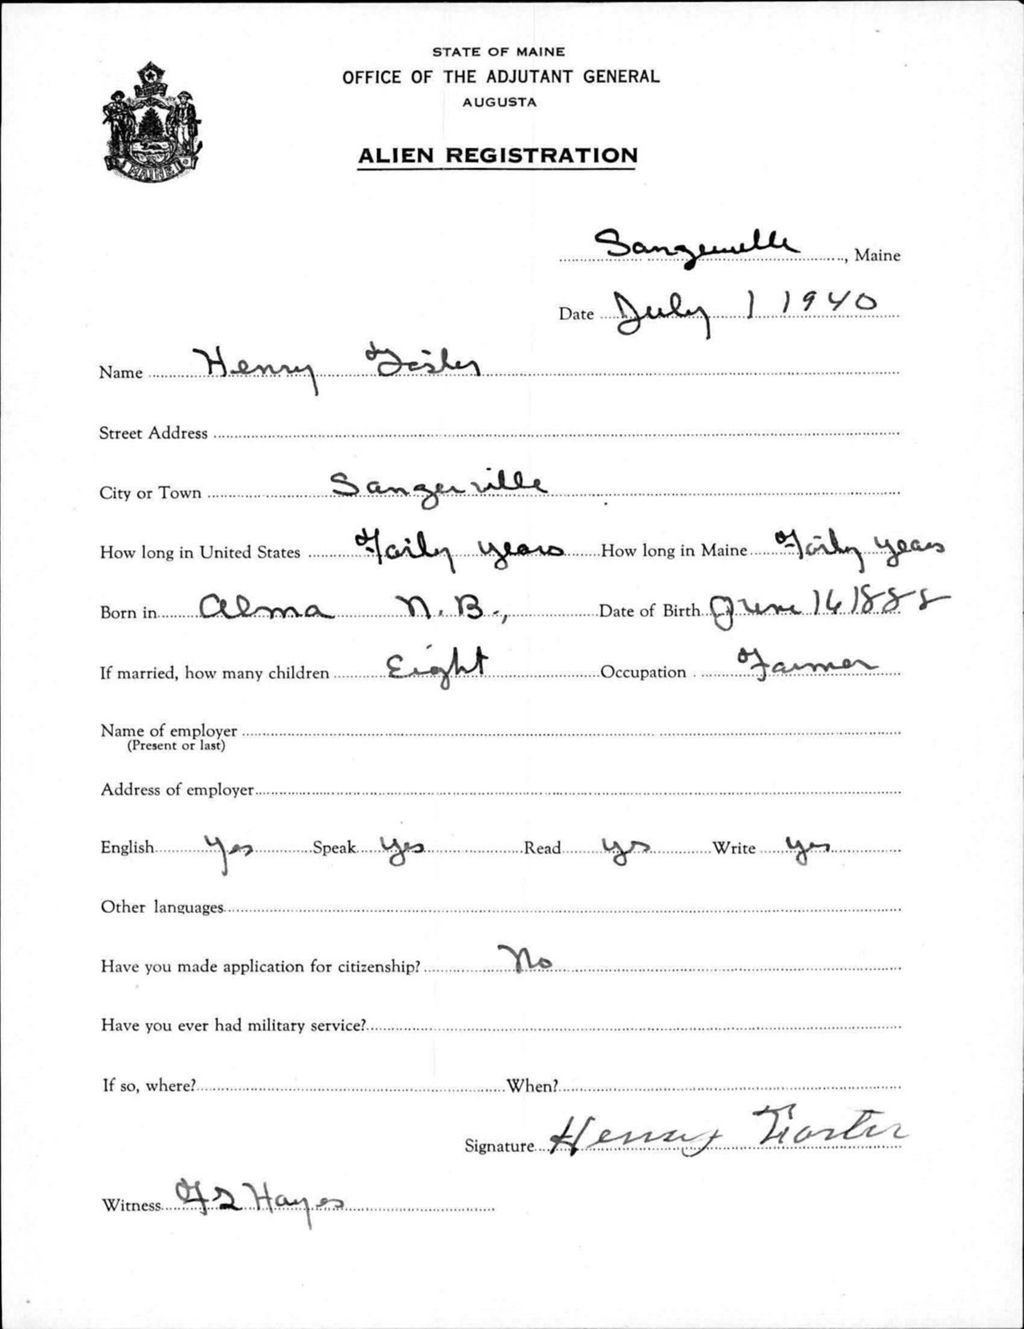 STATE OF MAINE
OFFICE OF THE ADJUTANT GENERAL
AUGUSTA
ALIEN REGISTRATION
MAINE
Sangerville, Maine
Date July 1 1940
Name Henry Foster
Street Address
City or Town Sangerville
How long in United States Forty years How long in Maine Forty years
Born in Alma N.B., Date of Birth June 16 1888
If married, how many children Eight Occupation Farmer
Name of employer
(Present or last)
Address of employer
English Yes Speak Yes Read Yes Write Yes
Other languages
Have you made application for citizenship? No
Have you ever had military service?
If so, where? When?
Signature Henry Foster
Witness Hayes